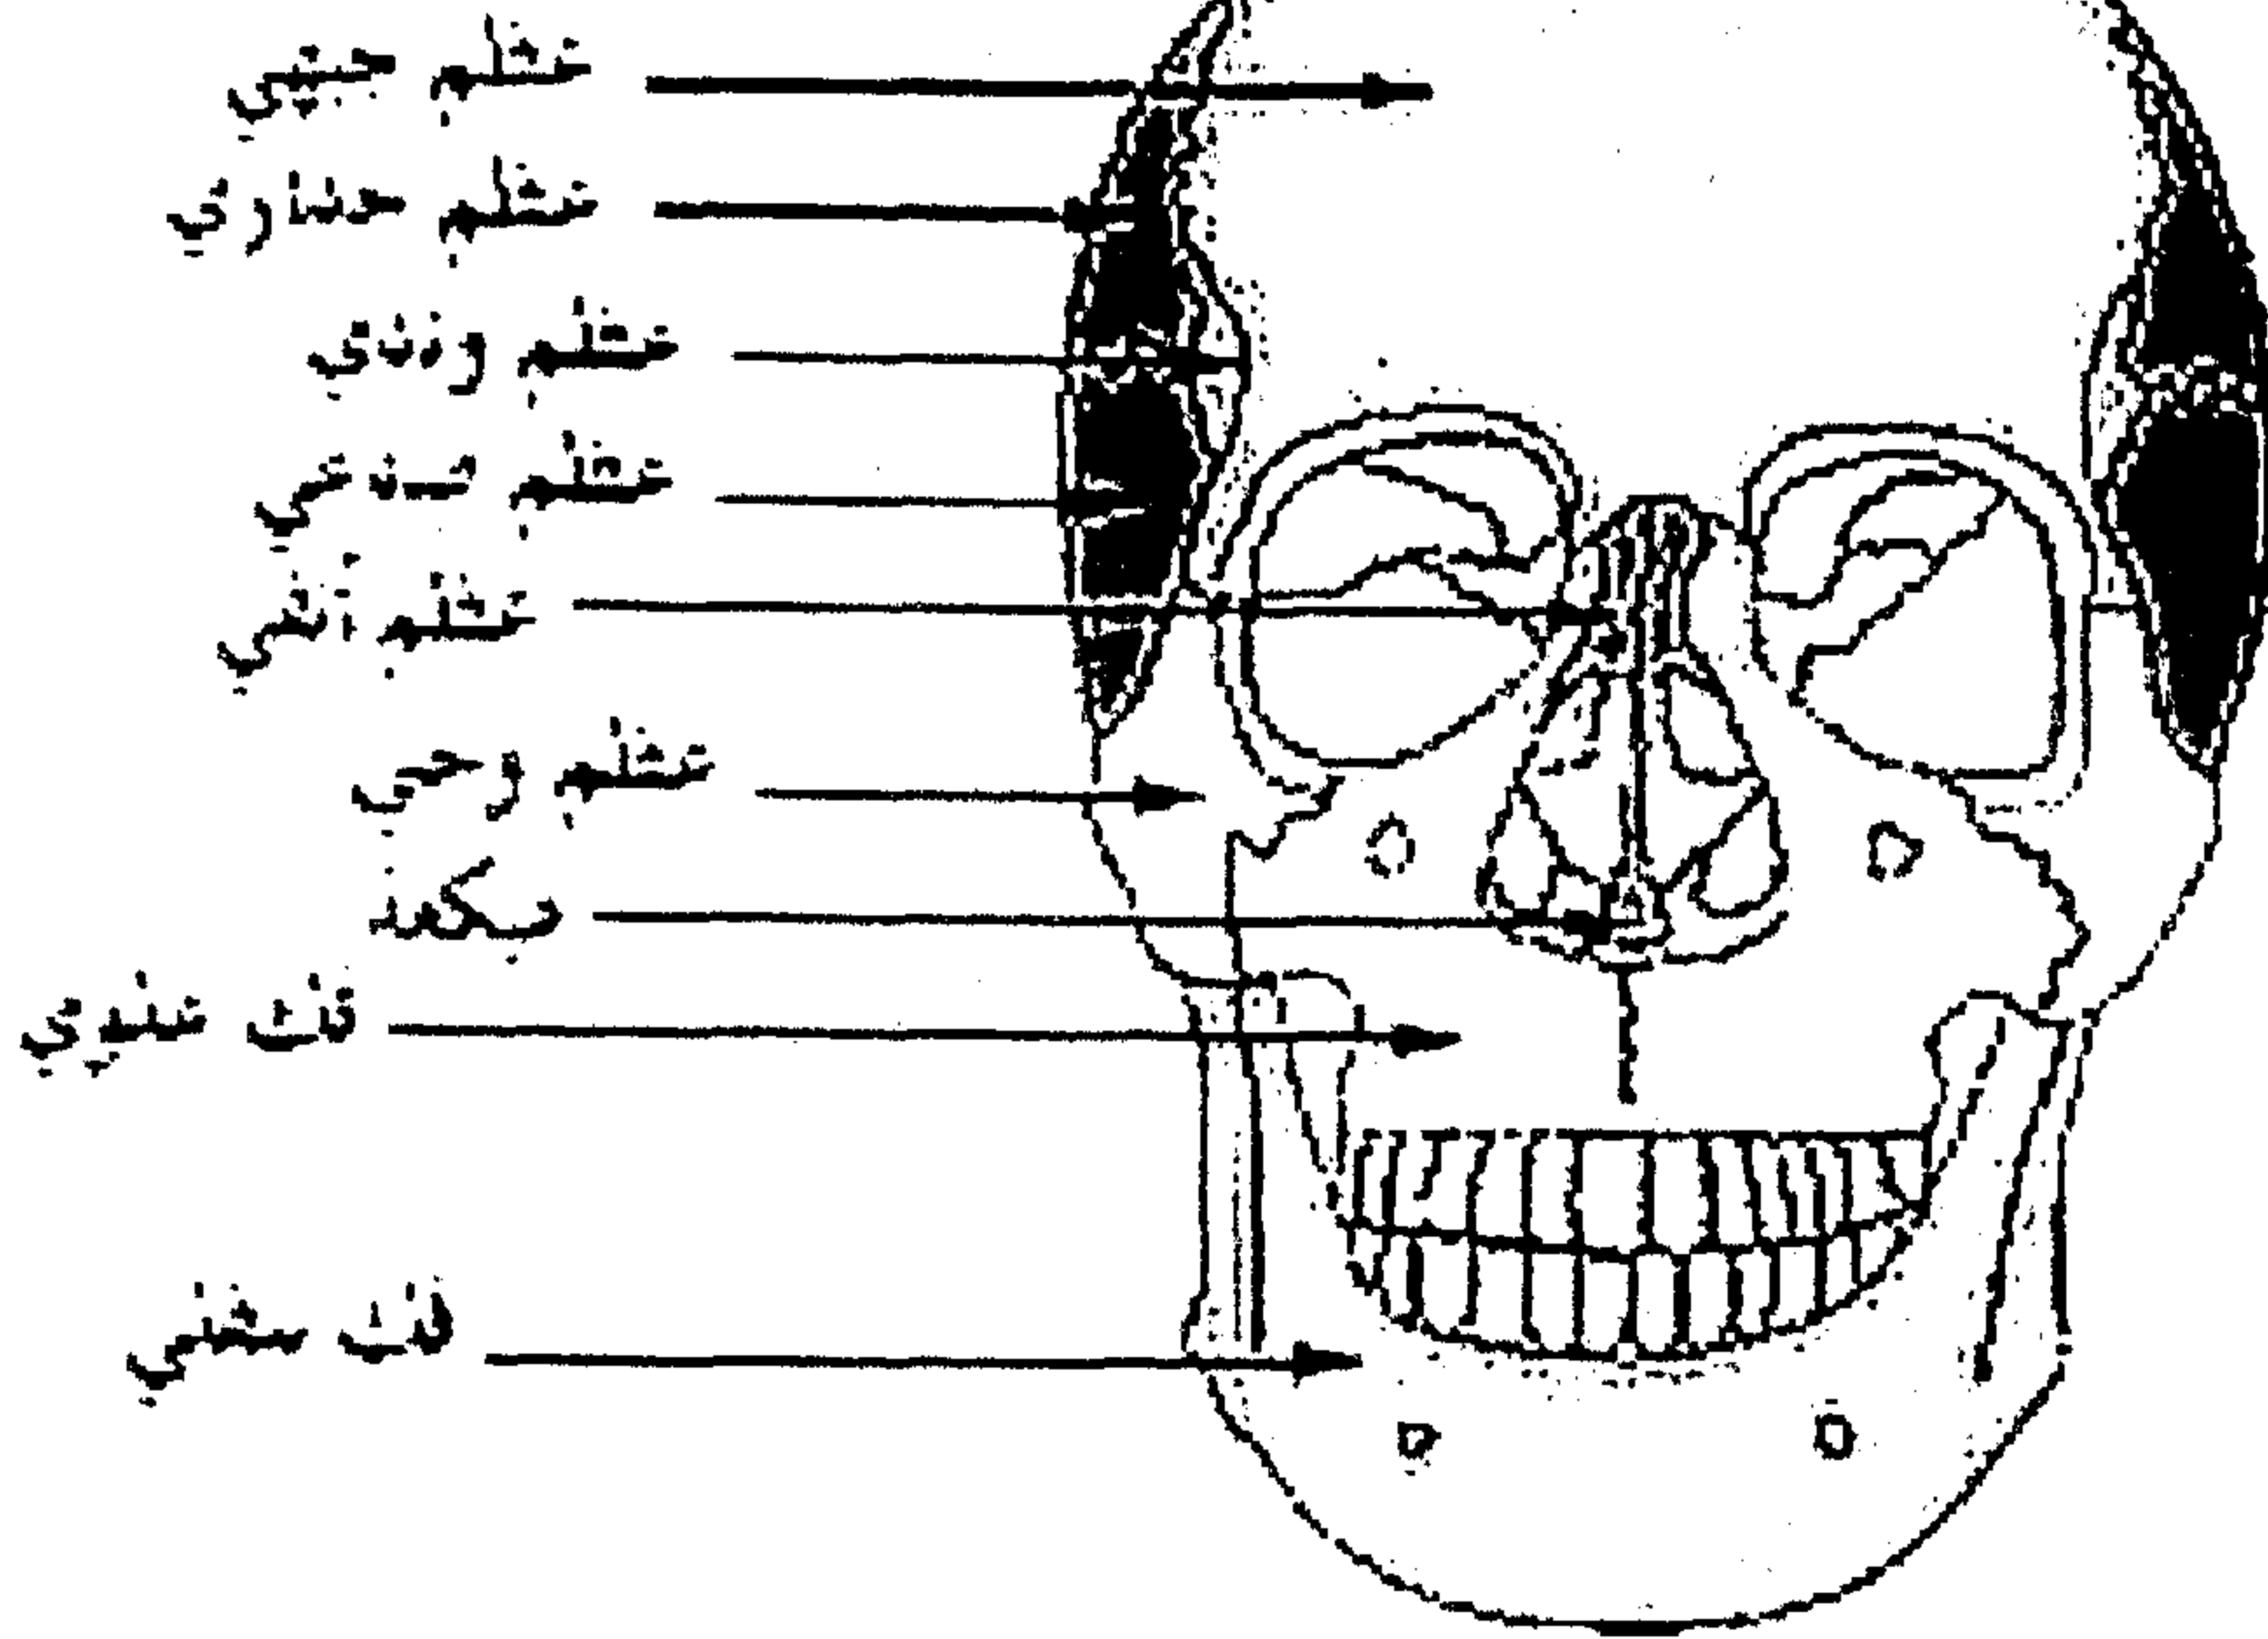 عظم جبهي
عظم جداري
عظم وتدي
عظم صدغي
عظم أنفي
عظم وجني
ميكعة
فك علوي
فك سفلي